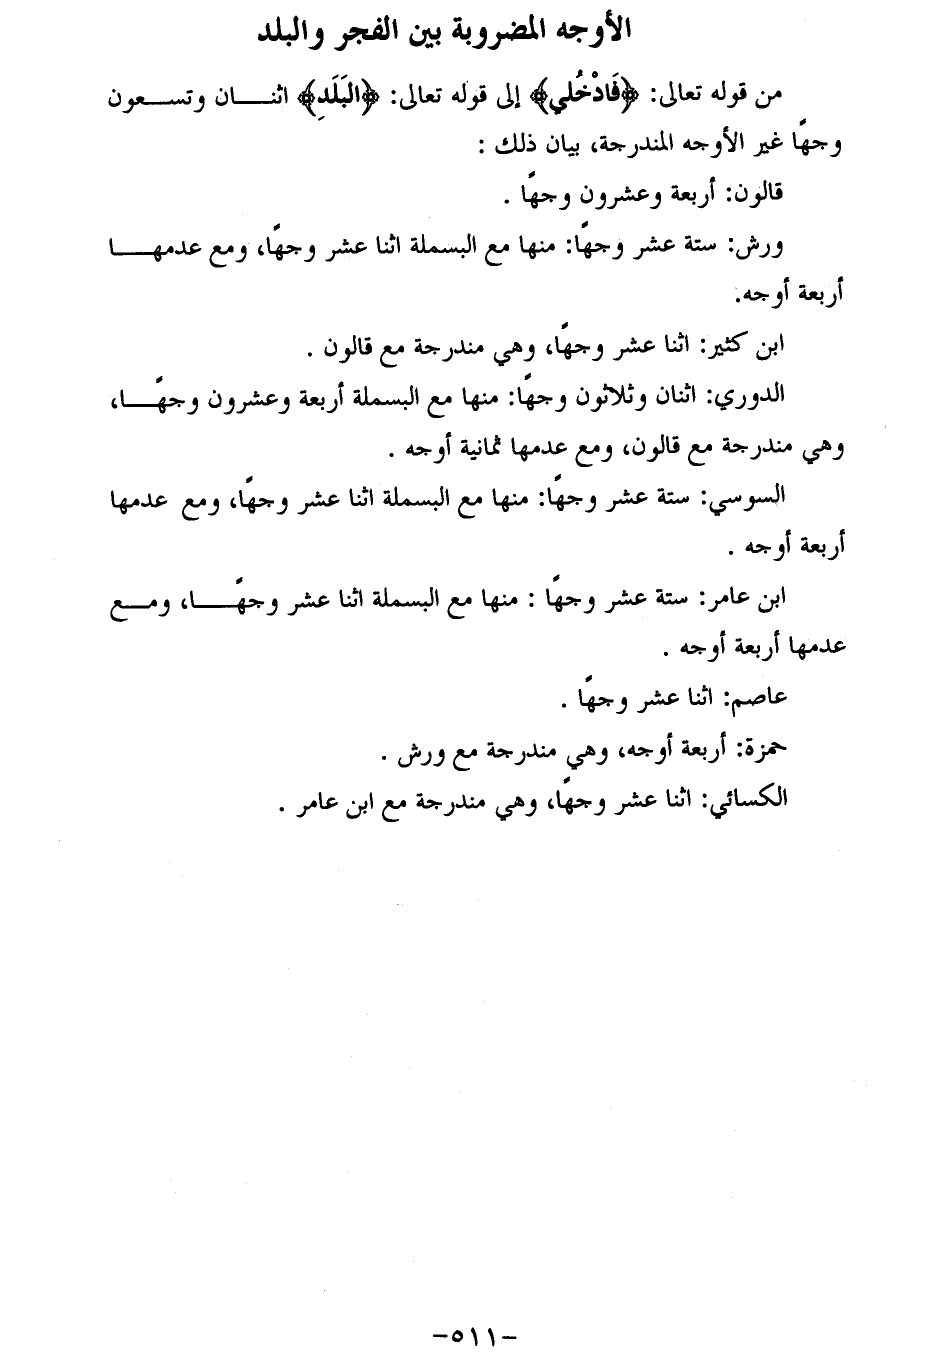 الأوجه المضروبة بين الفجر والبلد
من قوله تعالى: ﴿فَادْخُلي﴾ إلى قوله تعالى: ﴿البَلَدِ﴾ اثنـــان وتســعون
وجهًا غير الأوجه المندرجة، بيان ذلك :
قالون: أربعة وعشرون وجهًا .
ورش: ستة عشر وجهًا: منها مع البسملة اثنا عشر وجهًا، ومع عدمهـــا
أربعة أوجه.
ابن كثير: اثنا عشر وجهًا، وهي مندرجة مع قالون .
الدوري: اثنان وثلاثون وجهًا: منها مع البسملة أربعة وعشرون وجهًـــا،
وهي مندرجة مع قالون، ومع عدمها ثمانية أوجه .
السوسي: ستة عشر وجهًا: منها مع البسملة اثنا عشر وجهًا، ومع عدمها
أربعة أوجه .
ابن عامر: ستة عشر وجهًا : منها مع البسملة اثنا عشر وجهًـــا، ومــع
عدمها أربعة أوجه .
عاصم: اثنا عشر وجهًا .
حمزة: أربعة أوجه، وهي مندرجة مع ورش .
الكسائي: اثنا عشر وجهًا، وهي مندرجة مع ابن عامر .
-٥١١-